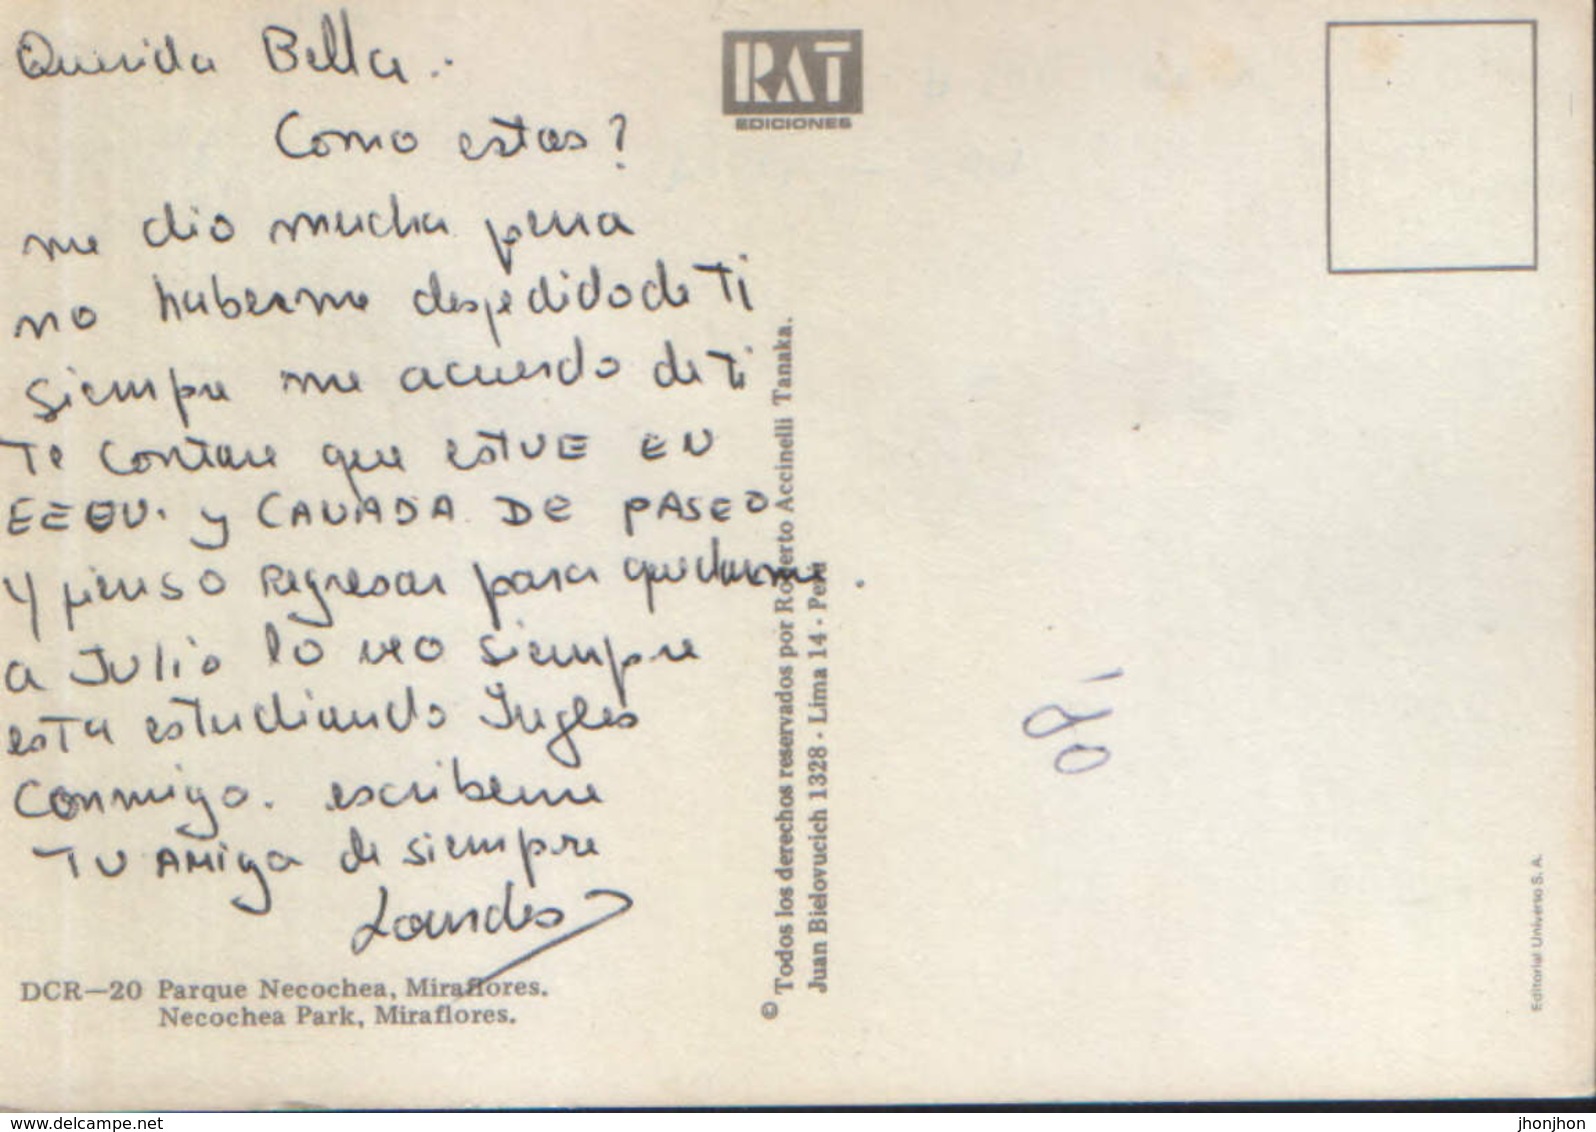 Querida Bella..
Como estas?
me dio mucha pena
no haberme despedido de Ti
siempre me acuerdo de Ti
Te contare que estUE EN
EEUU. y CANADA DE PASEO
y pienso regresar para quedarme.
a Julio lo veo siempre
esta estudiando Ingles
Conmigo. escribeme
TU AMiga de siempre
Lourdes
DCR—20 Parque Necochea, Miraflores.
Necochea Park, Miraflores.
RAT
EDICIONES
© Todos los derechos reservados por Roberto Accinelli Tanaka.
Juan Bielovucich 1328 - Lima 14 - Perú
Editorial Universo S. A.
www.delcampe.net
jhonjhon